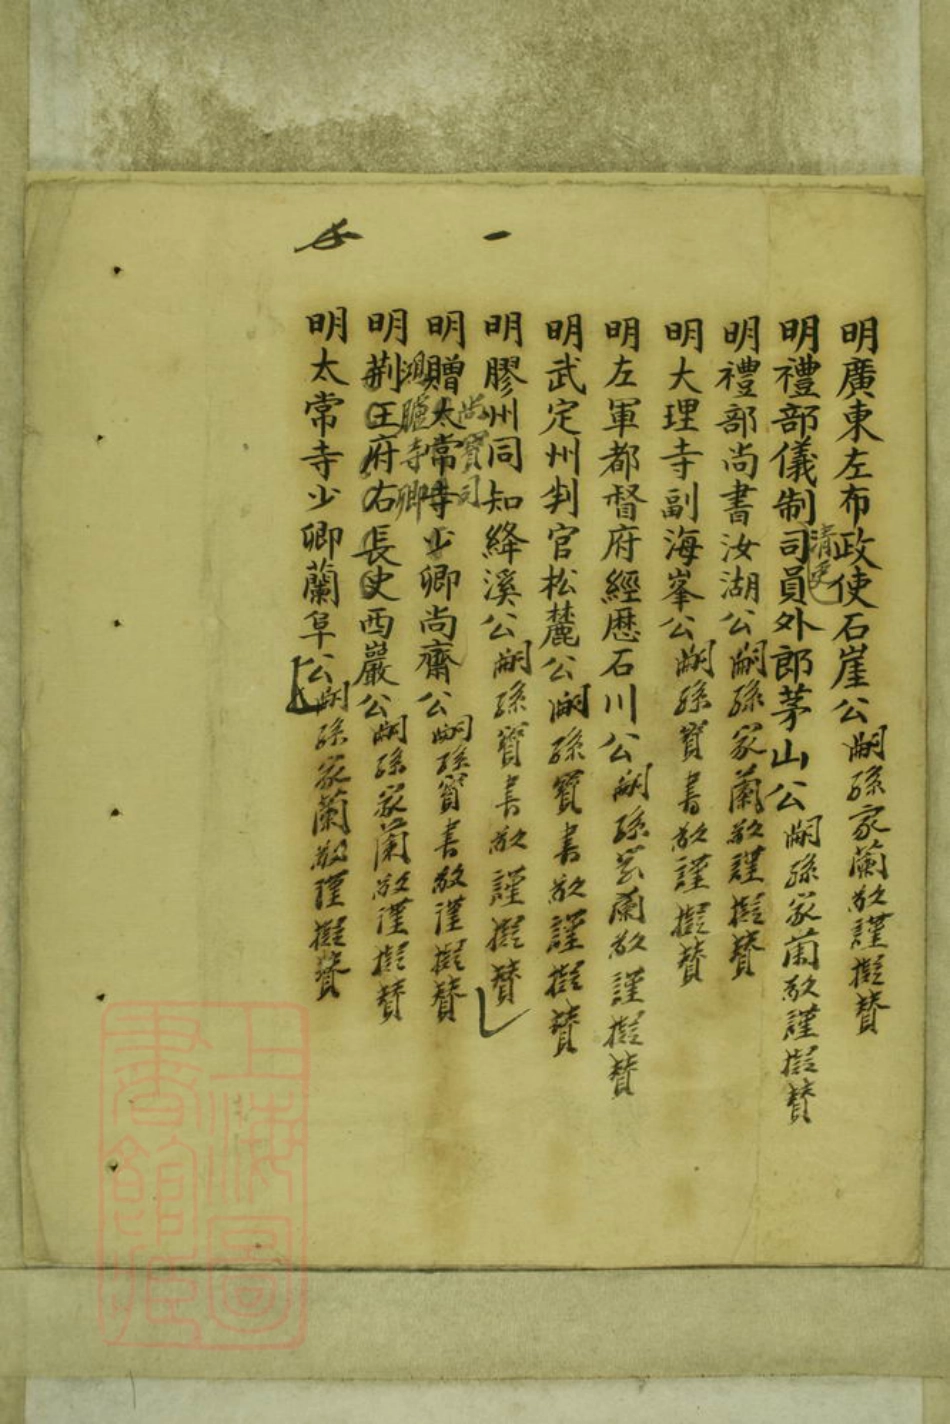 明廣東左布政使石崖公嗣孫家蘭敬謹擬贊
明禮部儀制司員外郎茅山公嗣孫家蘭敬謹擬贊
清吏
明禮部尚書汝湖公嗣孫家蘭敬謹擬贊
明大理寺副海峯公嗣孫寳書敬謹擬贊
明左軍都督府經歷石川公嗣孫家蘭敬謹擬贊
明武定州判官松麓公嗣孫寳書敬謹擬贊
一
明膠州同知絳溪公嗣孫寳書敬謹擬贊
尚寳司
明贈太常寺少卿尚齋公嗣孫寳書敬謹擬贊
鴻臚寺卿
明荆王府右長史西巖公嗣孫家蘭敬謹擬贊
明太常寺少卿蘭阜公嗣孫家蘭敬謹擬贊
上海圖
書館藏